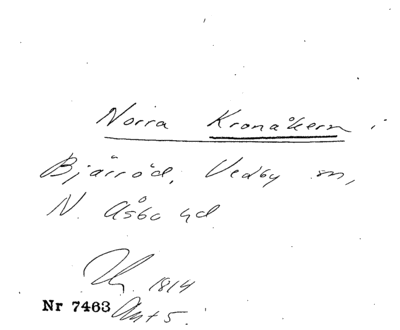 Norra Kronåkern i
Bjärröd, Vedby sn,
N. Åsbo hd
1814
Nr 7463 Akt 5.